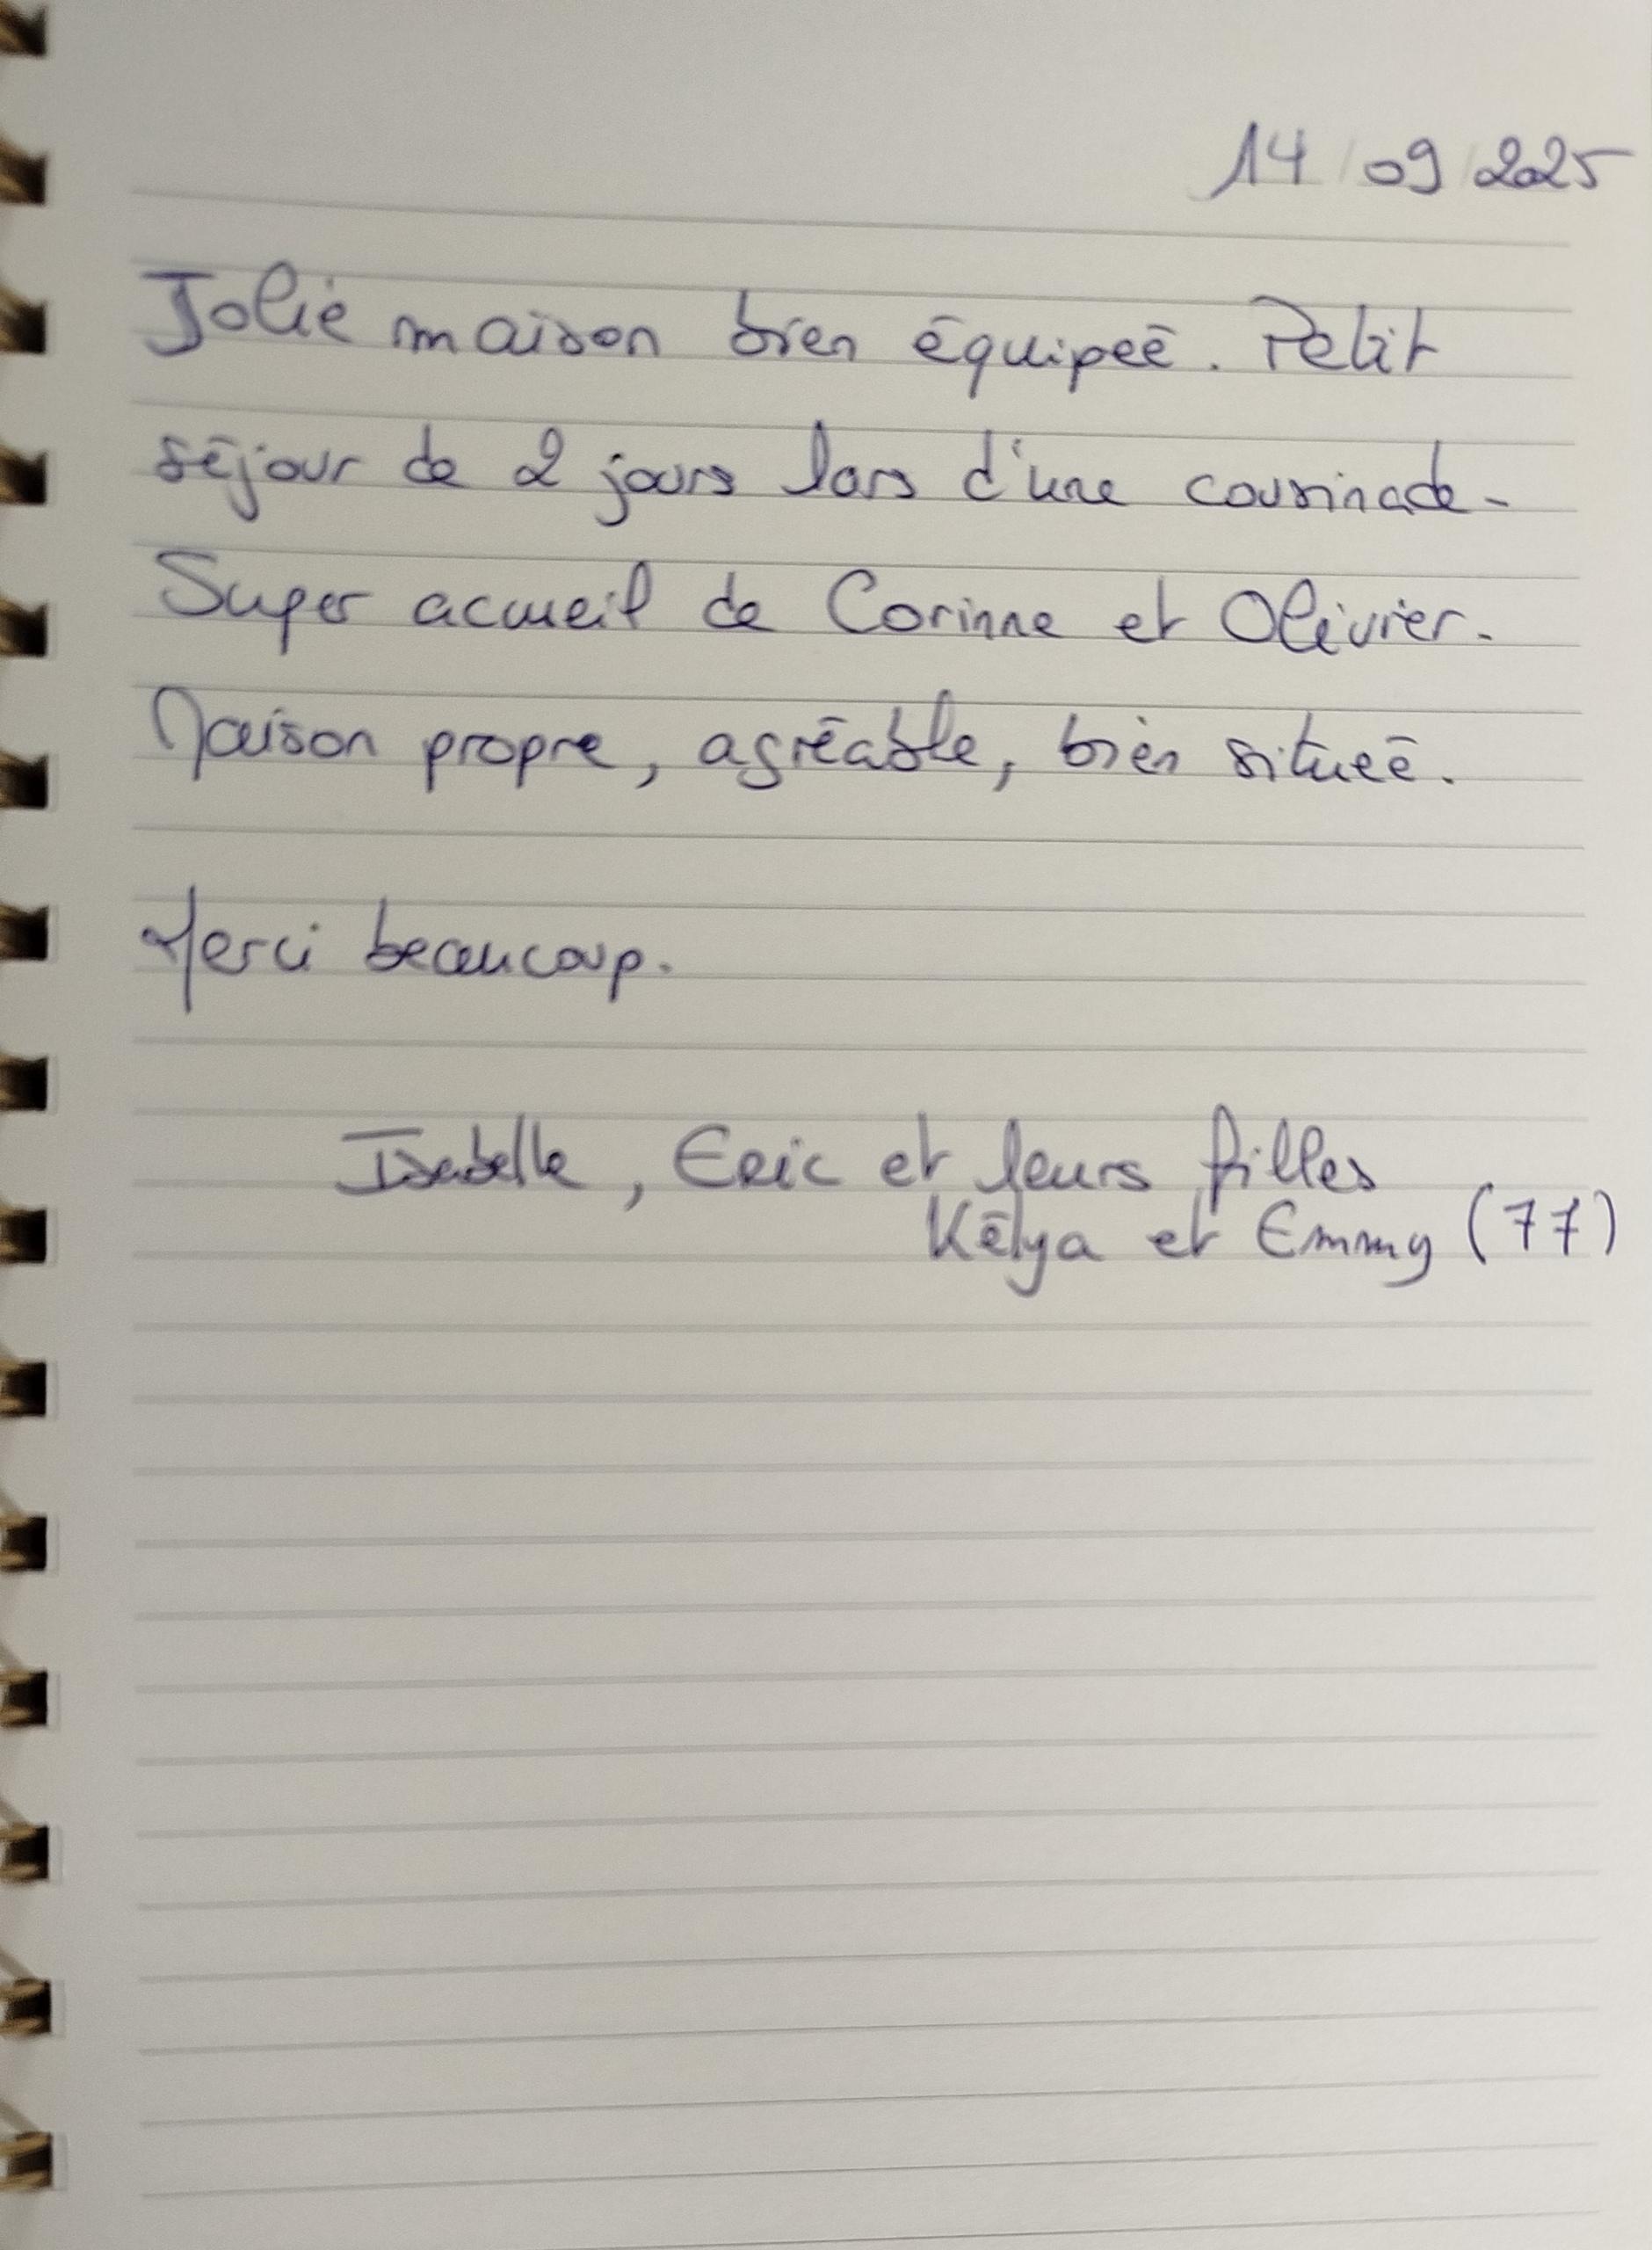 14/09/2025
Jolie maison bien équipée. Petit
séjour de 2 jours lors d'une cousinade.
Super accueil de Corinne et Olivier.
Maison propre, agréable, bien située.
Merci beaucoup.
Isabelle, Eric et leurs filles
Kélya et Emmy (77)